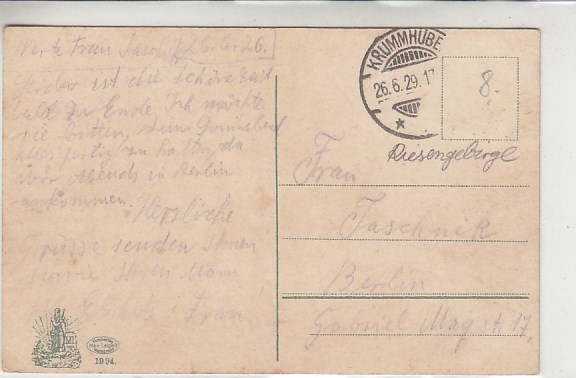 Werte Frau 26.6.26.
Leider ist die schöne Zeit
bald zu Ende. Ich möchte
sie bitten, Sonnabend
alles fertig zu halten, da
wir abends in Berlin
ankommen. Herzliche
Grüsse senden Ihnen
sowie Ihren Mann
Frau
KRUMMHÜBE
26.6.29.17
8.
Riesengebirge
Frau
Taschnik
Berlin
Gabriel Maxstr. 17.
1994.